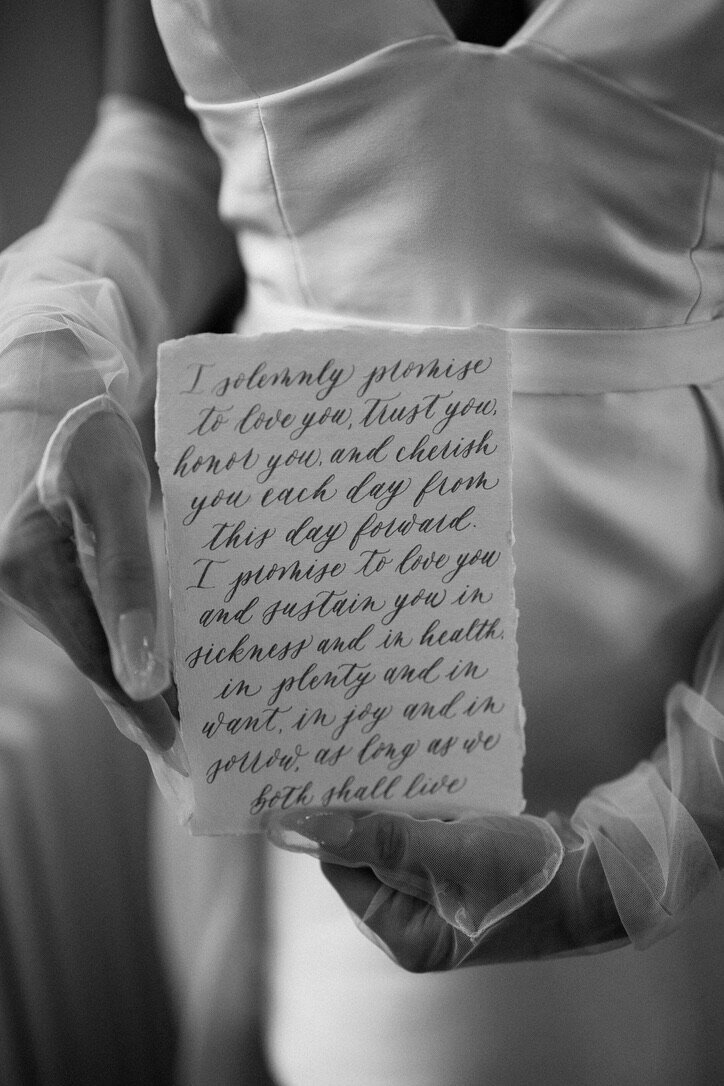 I solemnly promise
to love you, trust you,
honor you, and cherish
you each day from
this day forward.
I promise to love you
and sustain you in
sickness and in health,
in plenty and in
want, in joy and in
sorrow, as long as we
both shall live